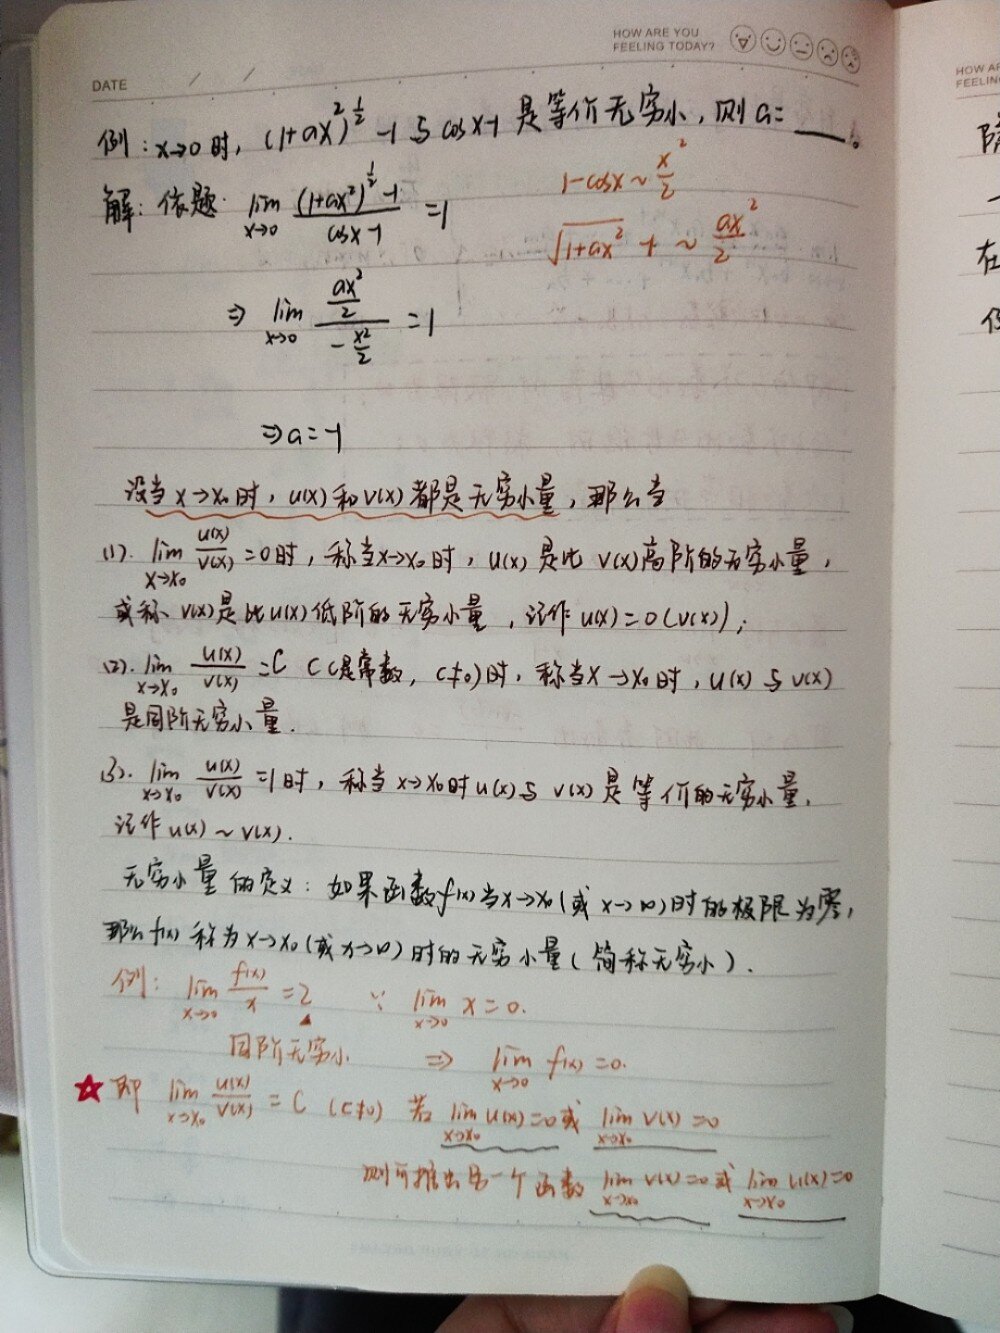 HOW ARE YOU
FEELING TODAY?
DATE / /
例：x→0时，(1+ax²)^½ -1与cosx-1是等价无穷小，则a=___.
解：依题 lim x→0 ((1+ax²)^½ -1)/(cosx-1) =1
1-cosx~x²/2
√(1+ax²) -1 ~ ax²/2
⇒ lim x→0 (ax²/2)/(-x²/2) =1
⇒a=-1
设当x→x₀时，u(x)和v(x)都是无穷小量，那么当
(1). lim x→x₀ u(x)/v(x) =0时，称当x→x₀时，u(x)是比v(x)高阶的无穷小量，
或称v(x)是比u(x)低阶的无穷小量，记作u(x)=o(v(x));
(2). lim x→x₀ u(x)/v(x) =C (C是常数，C≠0)时，称当x→x₀时，u(x)与v(x)
是同阶无穷小量.
(3). lim x→x₀ u(x)/v(x) =1时，称当x→x₀时u(x)与v(x)是等价的无穷小量,
记作u(x)~v(x).
无穷小量的定义：如果函数f(x)当x→x₀(或x→∞)时的极限为零,
那么f(x)称为x→x₀(或x→∞)时的无穷小量(简称无穷小).
例：lim x→0 f(x)/x =2 ∵ lim x→0 x=0.
同阶无穷小 ⇒ lim x→0 f(x)=0.
即 lim x→x₀ u(x)/v(x) =C (C≠0) 若 lim x→x₀ u(x)=0或 lim x→x₀ v(x)=0
则可推出另一个函数 lim x→x₀ v(x)=0或 lim x→x₀ u(x)=0
HOW AR
FEELIN
在